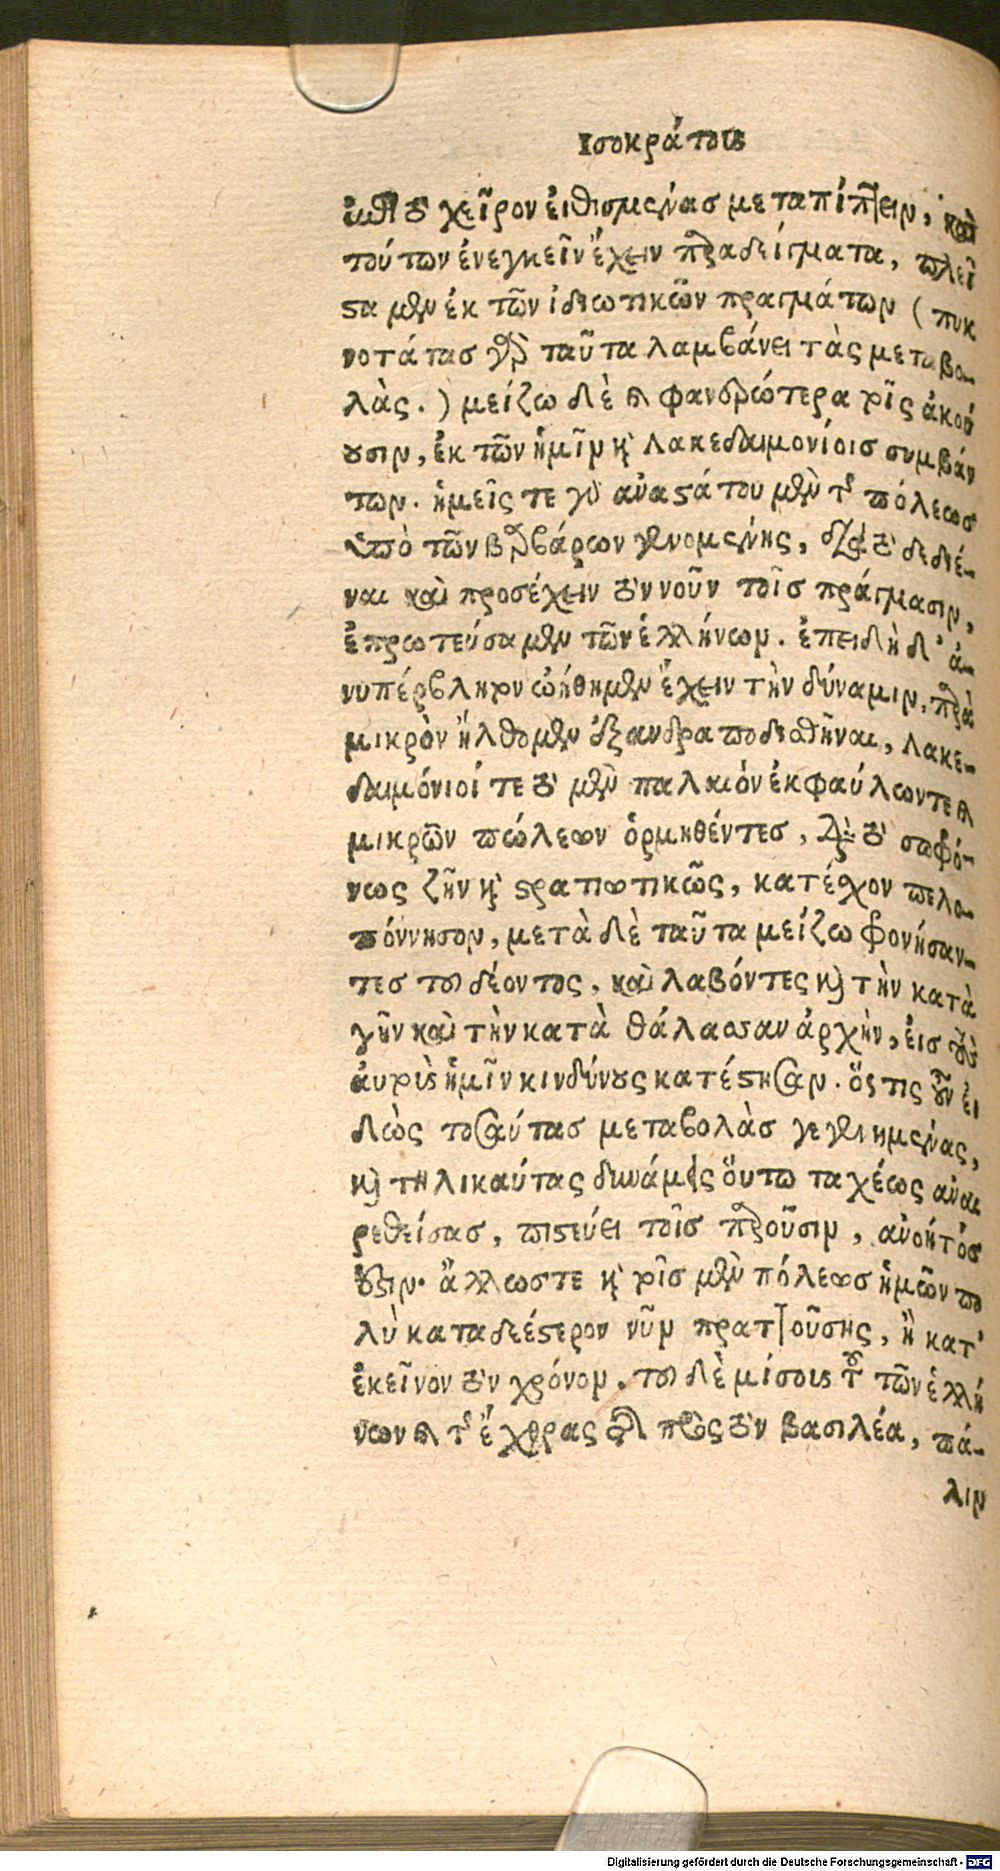 Ισοκράτους
ἐπὶ τὸ χεῖρον ἐιθισμένας μεταπίπτειν, καὶ
τούτων ἐνεγκεῖν ἔχειν παραδείγματα, πλεῖ
στα μὲν ἐκ τῶν ἰδιωτικῶν πραγμάτων ( πυκ
νοτάτας γὰρ ταῦτα λαμβάνει τὰς μεταβο-
λὰς. ) μείζω δὲ καὶ φανερώτερα τοῖς ἀκού
ουσιν, ἐκ τῶν ἡμῖν καὶ Λακεδαιμονίοις συμβάν
των. ἡμεῖς τε γὰρ ἀναστάτου μὲν τῆς πόλεως
ὑπὸ τῶν βαρβάρων γενομένης, διὰ τὸ δεδιέ-
ναι καὶ προσέχειν τὸν νοῦν τοῖς πράγμασιν,
ἐπρωτεύσαμεν τῶν ἑλλήνων. ἐπειδὴ δ' ἀ-
νυπέρβλητον ὠήθημεν ἔχειν τὴν δύναμιν, παρὰ
μικρὸν ἤλθομεν ἐξανδραποδισθῆναι, Λακε-
δαιμόνιοί τε τὸ μὲν παλαιὸν ἐκ φαύλων τε καὶ
μικρῶν πόλεων ὁρμηθέντες, διὰ τὸ σωφρό-
νως ζῆν καὶ στρατιωτικῶς, κατέσχον πελο-
πόννησον, μετὰ δὲ ταῦτα μείζω φρονήσαν-
τες τοῦ δέοντος, καὶ λαβόντες καὶ τὴν κατὰ
γῆν καὶ τὴν κατὰ θάλασσαν ἀρχὴν, εἰς τοὺς
ἀυτοὺς ἡμῖν κινδύνους κατέστησαν. ὅστις οὖν εἰ
δὼς τοσαύτας μεταβολὰς γεγενημένας,
καὶ τηλικαύτας δυνάμεις ὅυτω ταχέως ἀναι
ρεθείσας, πιστεύει τοῖς παροῦσιν, ἀνόητός
ἐστιν. ἄλλως τε καὶ τῆς μὲν πόλεως ἡμῶν πο
λὺ καταδεέστερον νῦν πραττούσης, ἢ κατ'
ἐκεῖνον τὸν χρόνον. τοῦ δὲ μίσους τοῦ τῶν ἑλλή
νων καὶ τῆς ἔχθρας τῆς πρὸς τὸν βασιλέα, πά-
λιν
Digitalisierung gefördert durch die Deutsche Forschungsgemeinschaft - DFG